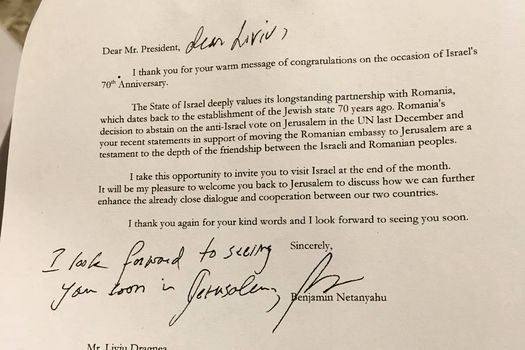 Dear Mr. President, Dear Liviu,
I thank you for your warm message of congratulations on the occasion of Israel's
70th Anniversary.
The State of Israel deeply values its longstanding partnership with Romania,
which dates back to the establishment of the Jewish state 70 years ago. Romania's
decision to abstain on the anti-Israel vote on Jerusalem in the UN last December and
your recent statements in support of moving the Romanian embassy to Jerusalem are a
testament to the depth of the friendship between the Israeli and Romanian peoples.
I take this opportunity to invite you to visit Israel at the end of the month.
It will be my pleasure to welcome you back to Jerusalem to discuss how we can further
enhance the already close dialogue and cooperation between our two countries.
I thank you again for your kind words and I look forward to seeing you soon.
Sincerely,
I look forward to seeing
you soon in Jerusalem,
Benjamin Netanyahu
Mr. Liviu Dragnea